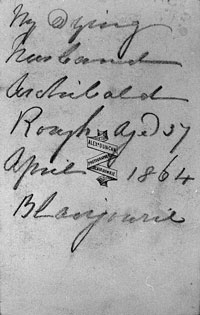 My Dying
Husband
Archibald
Rough Aged 37
April 1864
Blairgowrie
ALEX DUNCAN
PHOTOGRAPHER
BLAIRGOWRIE